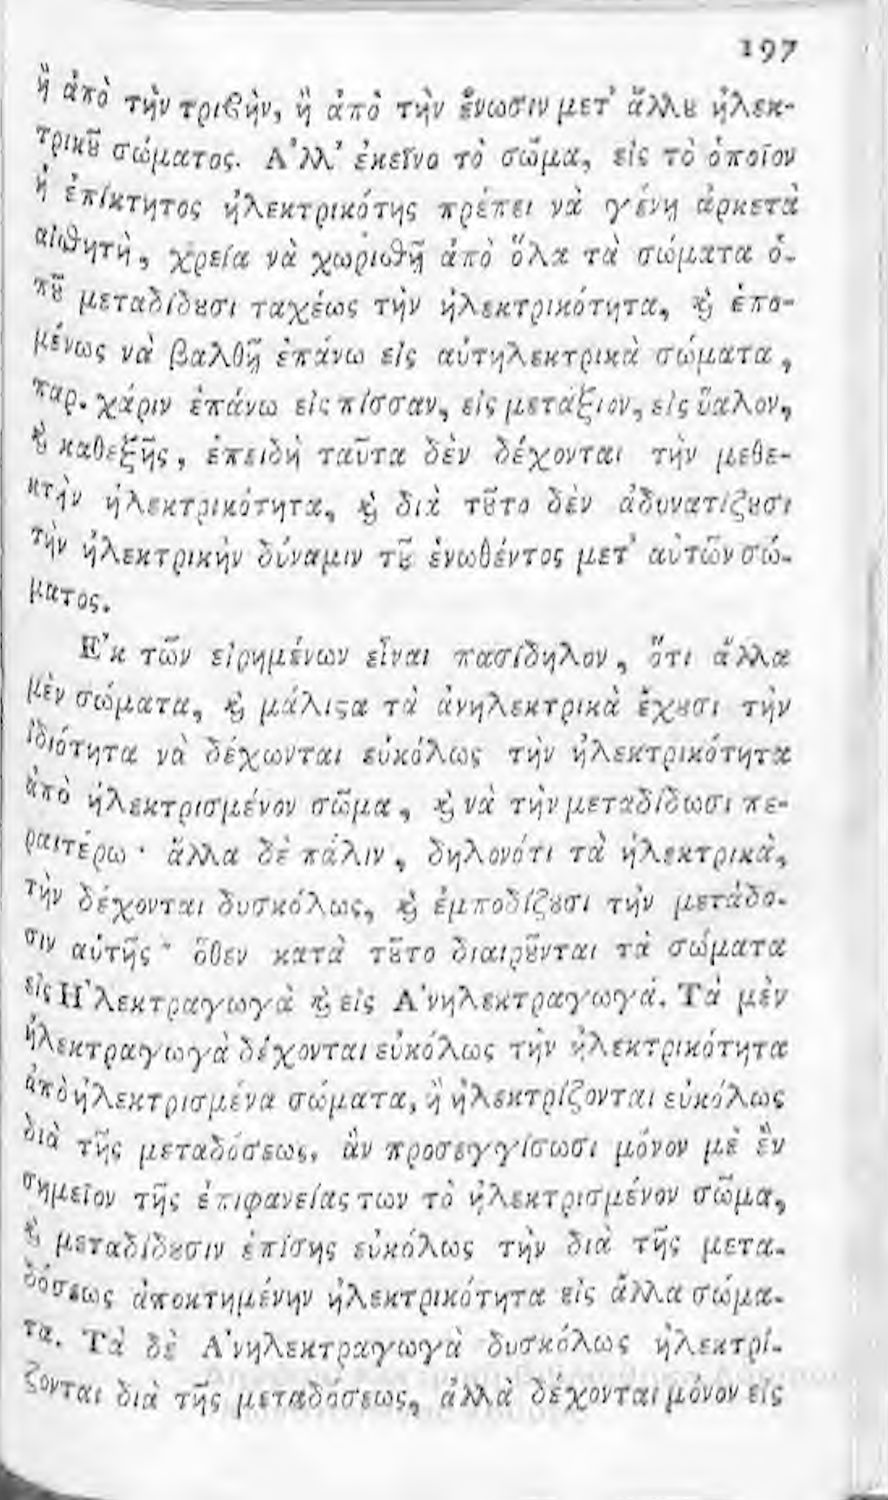 197
ἢ ἀπὸ τὴν τριϐὴν, ἢ ἀπὸ τὴν ἕνωσιν μετ' ἄλλȣ ἠλεκ-
τρικȣ͂ σώματος. Α'λλ' ἐκεῖνο τὸ σῶμα, εἰς τὸ ὁποῖον
ἡ ἐπίκτητος ἠλεκτρικότης πρέπει νὰ γένῃ ἀρκετὰ
αἰσθητὴ, χρεία νὰ χωρισθῇ ἀπὸ ὅλα τὰ σώματα ὁ-
πȣ͂ μεταδίδȣσι ταχέως τὴν ἠλεκτρικότητα, ϗ̀ ἑπο-
μένως νὰ βαλθῇ ἐπάνω εἰς αὐτηλεκτρικὰ σώματα,
παρ. χάριν ἐπάνω εἰς πίσσαν, εἰς μετάξιον, εἰς ὕαλον,
ϗ̀ καθεξῆς, ἐπειδὴ ταῦτα δὲν δέχονται τὴν μεθε-
κτὴν ἠλεκτρικότητα, ϗ̀ διὰ τȣ͂το δὲν ἀδυνατίζȣσι
τὴν ἠλεκτρικὴν δύναμιν τȣ͂ ἑνωθέντος μετ' αὐτῶν σώ-
ματος.
Ε'κ τῶν εἰρημένων εἶναι πασίδηλον, ὅτι ἄλλα
μὲν σώματα, ϗ̀ μάλιϛα τὰ ἀνηλεκτρικὰ ἔχȣσι τὴν
ἰδιότητα νὰ δέχωνται εὐκόλως τὴν ἠλεκτρικότητα
ἀπὸ ἠλεκτρισμένον σῶμα, ϗ̀ νὰ τὴν μεταδίδωσι πε-
ραιτέρω· ἄλλα δὲ πάλιν, δηλονότι τὰ ἠλεκτρικὰ,
τὴν δέχονται δυσκόλως, ϗ̀ ἐμποδίζȣσι τὴν μετάδο-
σιν αὐτῆς· ὅθεν κατὰ τȣ͂το διαιρȣ͂νται τὰ σώματα
εἰς Η'λεκτραγωγὰ ϗ̀ εἰς Α'νηλεκτραγωγά. Τὰ μὲν
ἠλεκτραγωγὰ δέχονται εὐκόλως τὴν ἠλεκτρικότητα
ἀπὸ ἠλεκτρισμένα σώματα, ἢ ἠλεκτρίζονται εὐκόλως
διὰ τῆς μεταδόσεως, ἂν προσεγγίσωσι μόνον μὲ ἓν
σημεῖον τῆς ἐπιφανείας των τὸ ἠλεκτρισμένον σῶμα,
ϗ̀ μεταδίδȣσιν ἐπίσης εὐκόλως τὴν διὰ τῆς μετα-
δόσεως ἀποκτημένην ἠλεκτρικότητα εἰς ἄλλα σώμα-
τα. Τὰ δὲ Α'νηλεκτραγωγὰ δυσκόλως ἠλεκτρί-
ζονται διὰ τῆς μεταδόσεως, ἀλλὰ δέχονται μόνον εἰς